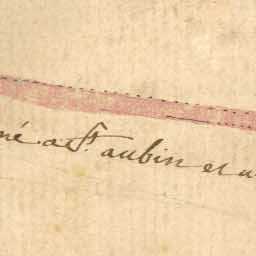 né a St. aubin et